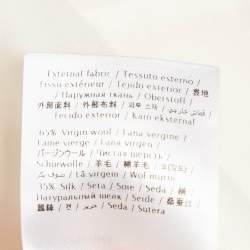 External fabric / Tessuto esterno /
Tissu extérieur / Tejido exterior / 表地
/ Наружная ткань / Oberstoff /
外部面料 / 外部布料 / 외부 소재 / قماش خارجي /
Tecido exterior / Kain eksternal
65% Virgin wool / Lana vergine /
Laine vierge / Lana virgen /
バージンウール / Чистая шерсть /
Schurwolle / 羊毛 / 羊毛 /
/ Lã virgem / Wol murni
35% Silk / Seta / Soie / Seda / 絹 /
Натуральный шелк / Seide / 桑蚕丝 /
蠶絲 / 견 / حرير / Seda / Sutera